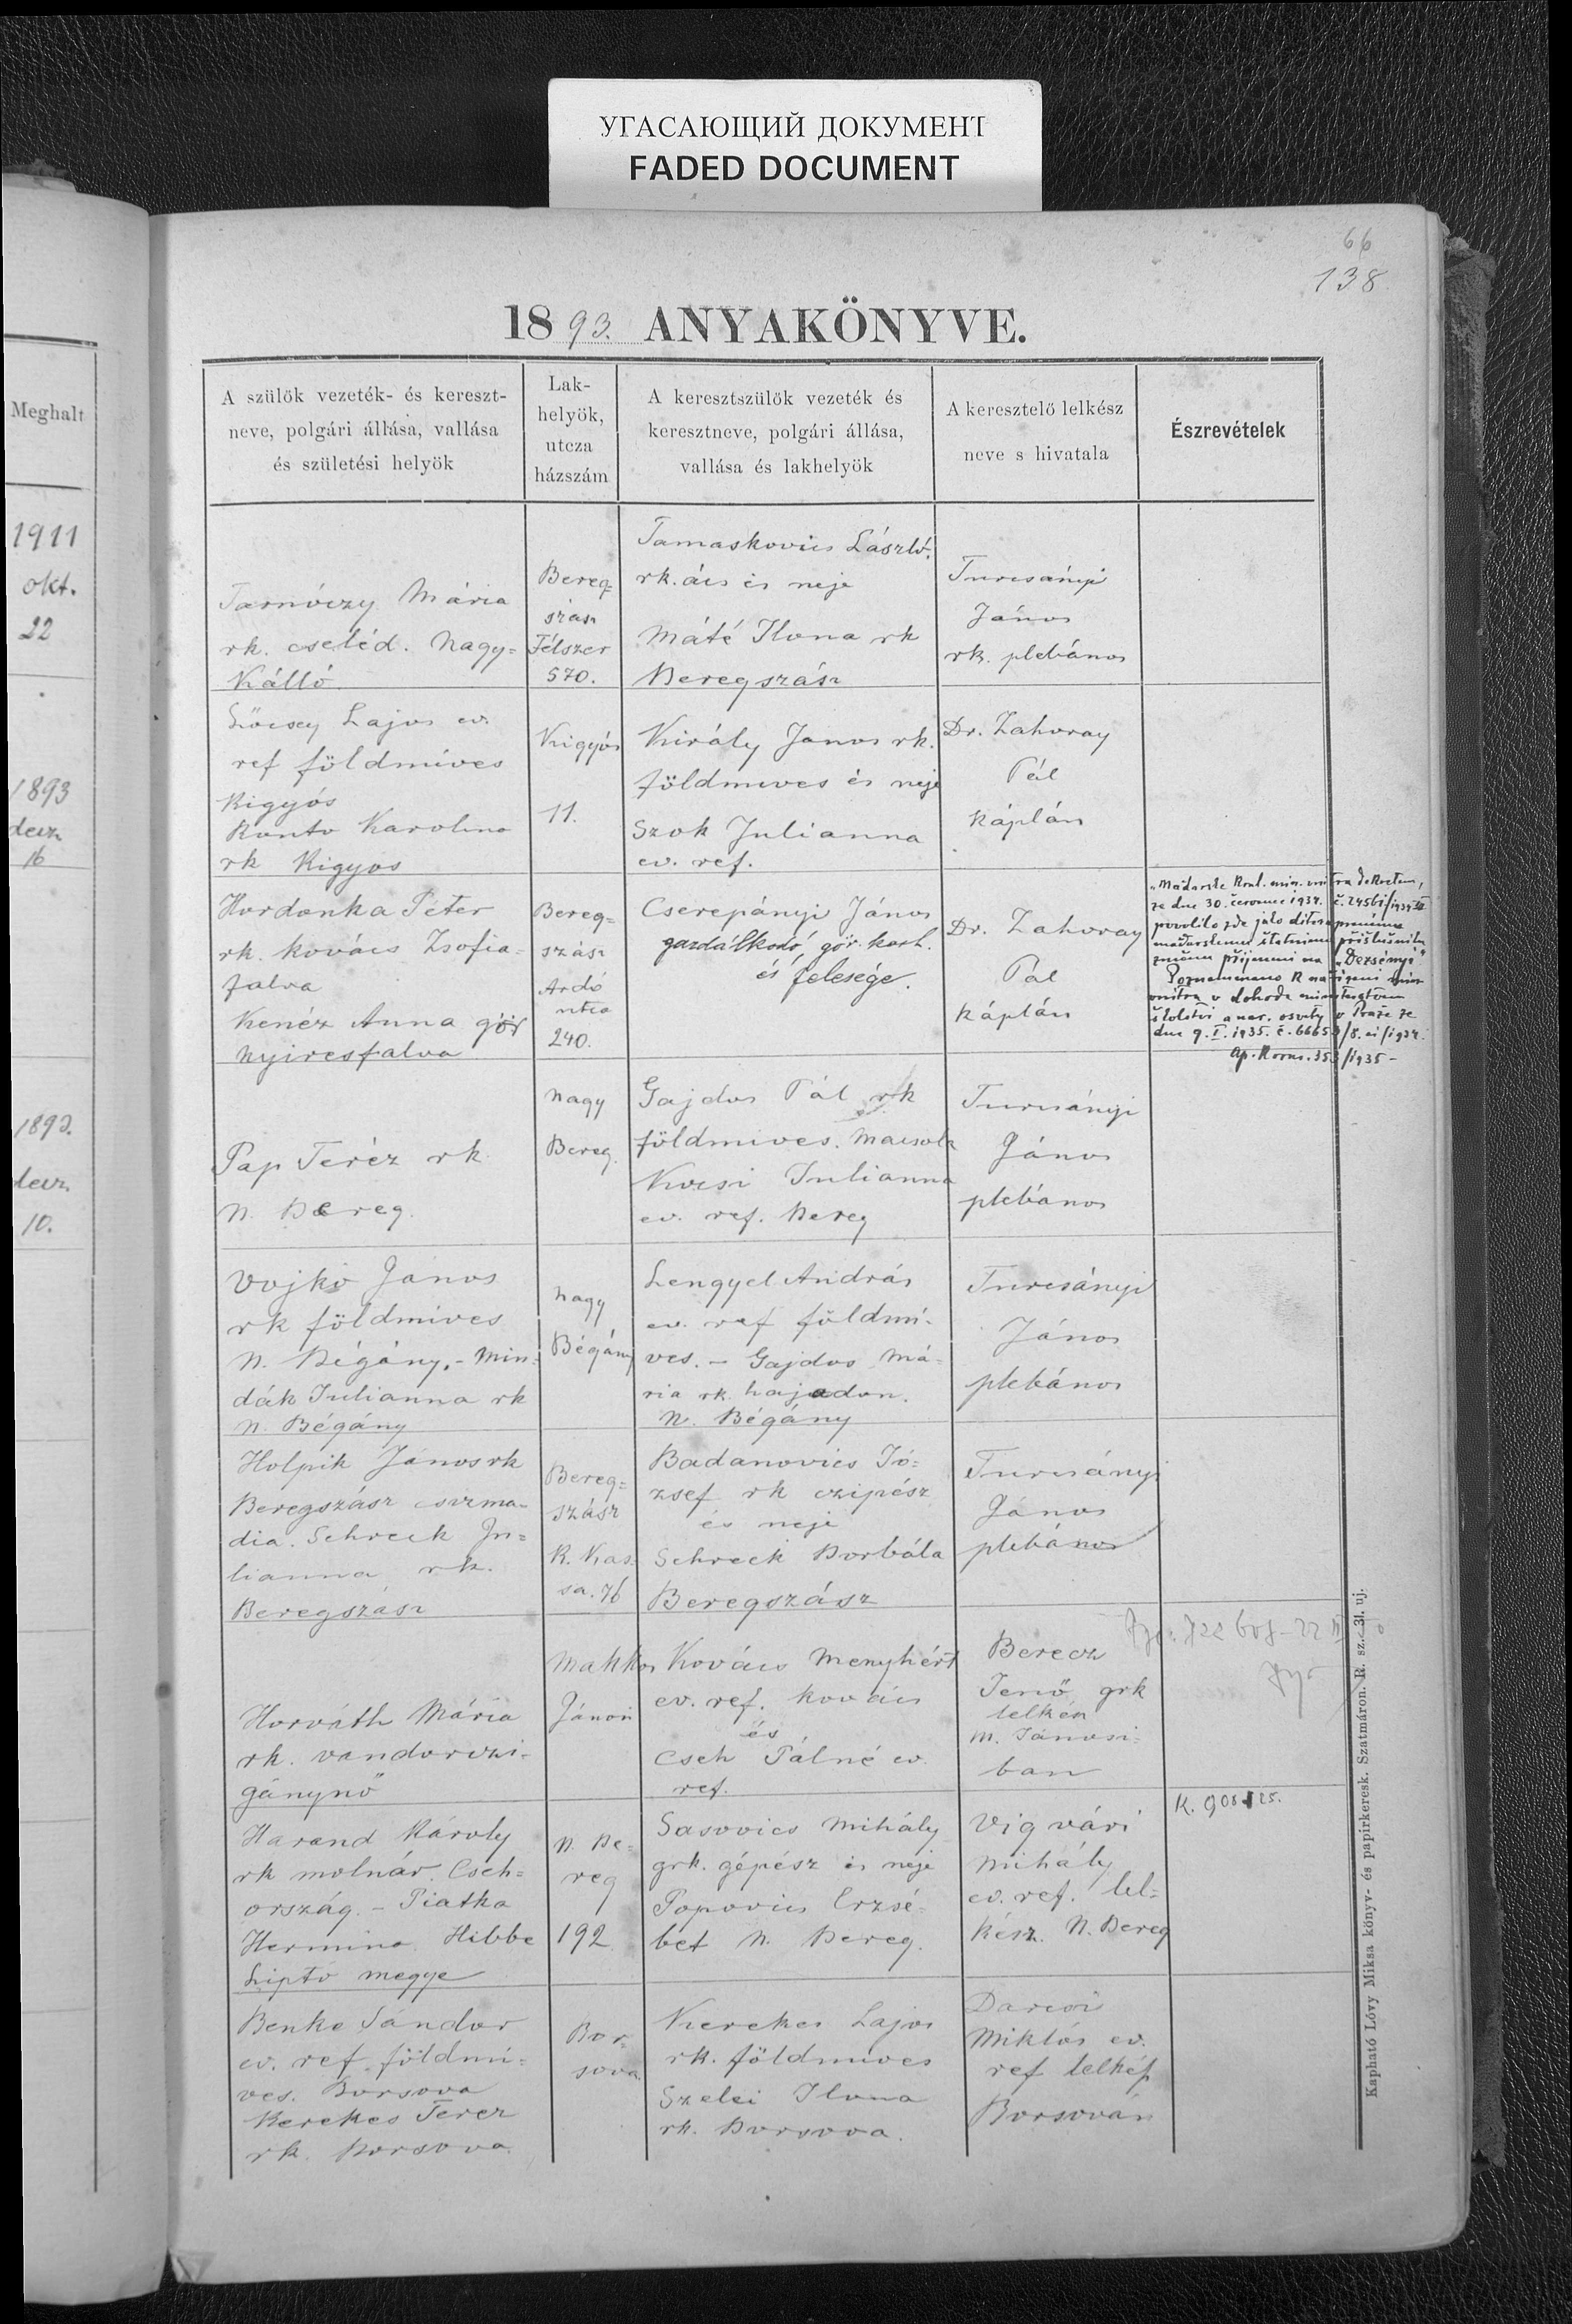 УГАСАЮЩИЙ ДОКУМЕНТ
FADED DOCUMENT
66
138
1893. ANYAKÖNYVE.
Meghalt
1911
okt.
22
1893
decz
16
1893.
decz
10.
A szülők vezeték- és kereszt-
neve, polgári állása, vallása
és születési helyök
Lak-
helyök,
utcza
házszám
A keresztszülők vezeték és
keresztneve, polgári állása,
vallása és lakhelyök
A keresztelő lelkész
neve s hivatala
Észrevételek
Tarnóczy Mária
rk. cseléd. Nagy=
Kálló
Bereg=
szász
Félszer
570.
Tamaskovics László
rk. ács és neje
Máté Ilona rk
Beregszász
Turcsányi
János
rk. plebános
Lőcsey Lajos ev.
ref földmives
Kigyós
Konto Karolina
rk Kigyos
Kigyós
11.
Király Janos rk.
földmives és neje
Szok Julianna
ev. ref.
Dr. Zahoray
Pál
káplán
Hordonka Péter
rk. kovács Zsofia=
falva
Kenéz Anna gör
Nyiresfalva
Bereg=
szász
Ardó
utca
240.
Cserepányi János
gazdálkodó, gör. kath.
és felesége.
Dr. Zahoray
Pál
káplán
"Maďarské Král. min. vnitra dekretem,
ze dne 30. července 1934. č. 24561/1934
povolilo zde jako dítě
maďarskému státnímu příslušníku
změnu příjmení na "Dezsényi"
Poznamenáno k nařízení min
vnitra v dohodě ministerstvem
školství a nar. osvěty v Praze ze
dne 9. I. 1935. č. 66653/8. ai/1934.
353/1935-
Pap Teréz rk
N. Bereg.
Nagy
Bereg.
Gajdos Pál rk
földmives. Macsola
Kocsi Julianna
ev. ref. Bereg
Turcsányi
János
plebános
Vojkó Janos
rk földmives
N. Bégány.- Min=
dák Julianna rk
N. Bégány
Nagy
Bégány
Lengyel András
ev. ref földmi-
ves. - Gajdos Má=
ria rk. hajadon.
N. Bégány
Turcsányi
János
plebános
Holpik János rk
Beregszász csizma-
dia. Schreck Ju=
lianna rk.
Beregszász
Bereg=
szász
K. Kas
sa. 76
Badanovics Jó=
zsef rk czipész
és neje
Schreck Borbála
Beregszász
Turcsányi
János
plebános
Horváth Mária
rk. vandorczi-
gánynő
Makkos
Jánosi
Kovács Menyhért
ev. ref. kovács
és
Cseh Pálné ev.
ref.
Berecz
Jenő grk
lelkész
M. Jánosi-
ban
Harand Károly
rk molnár. Cseh=
ország. - Piatka
Hermina Hibbe
Liptó megye
N. Be=
reg
192
Sasovics Mihály
grk. gépész és neje
Popovics Erzsé=
bet N. Bereg.
Vigvári
Mihály
ev. ref. lel=
kész. N. Bereg
Benke Sándor
ev. ref. földmi=
ves. Borsova
Kerekes Terez
rk. Borsova.
Bor-
sova
Kerekes Lajos
rk. földmives
Szelei Ilona
rk. Borsova.
Darcsi
Miklós ev.
ref lelkész
Borsován
Kapható Lővy Miksa könyv- és papirkeresk. Szatmáron. R. sz. 31. uj.